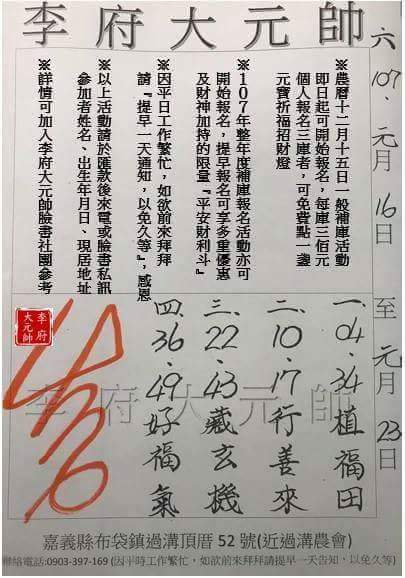 李府大元帥
六107、元月16日
至元月23日
※農曆十二月十五日一般補庫活動
即日起可開始報名，每庫三佰元
個人報名三庫者，可免費點一盞
元寶祈福招財燈
※107年整年度補庫報名活動亦可
開始報名，提早報名可享多重優惠
及財神加持的限量『平安財利斗』
※因平日工作繁忙，如欲前來拜拜
請『提早一天通知，以免久等』，感恩
※以上活動請於匯款後來電或臉書私訊
參加者姓名、出生年月日、現居地址
※詳情可加入李府大元帥臉書社團參考
一、04、34植福田
二、10、17行善來
三、22、43藏玄機
四、36、49好福氣
李府
大元帥
李府大元帥
嘉義縣布袋鎮過溝頂厝52號(近過溝農會)
聯絡電話:0903-397-169 (因平時工作繁忙，如欲前來拜拜請提早一天告知，以免久等)